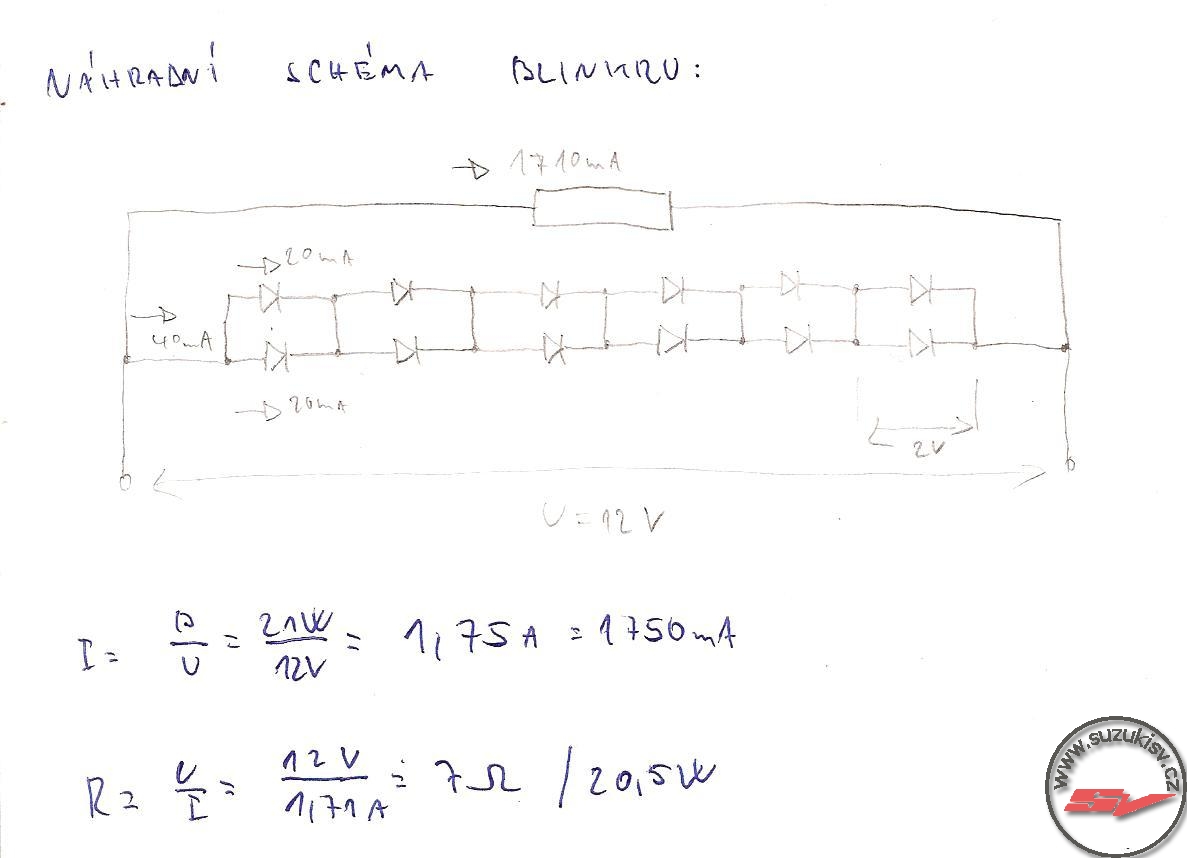 NÁHRADNÍ SCHÉMA BLINKRU:
1710mA
20mA
40mA
20mA
2V
U=12V
I= P/U = 21W/12V = 1,75A = 1750mA
R= U/I = 12V/1,71A ≐ 7Ω /20,5W
www.suzukisv.cz
SV